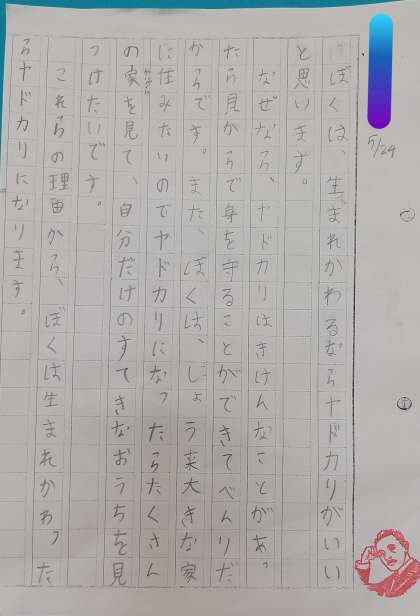 ぼくは、生まれかわるならヤドカリがいい
と思います。
なぜなら、ヤドカリはきけんなことがあっ
たら見からで身を守ることができてべんりだ
からです。また、ぼくは、しょう来大きな家
に住みたいのでヤドカリになったらたくさん
の家を見て、自分だけのすてきなおうちを見
つけたいです。
これらの理由から、ぼくは生まれかわった
らヤドカリになります。
5/29
①